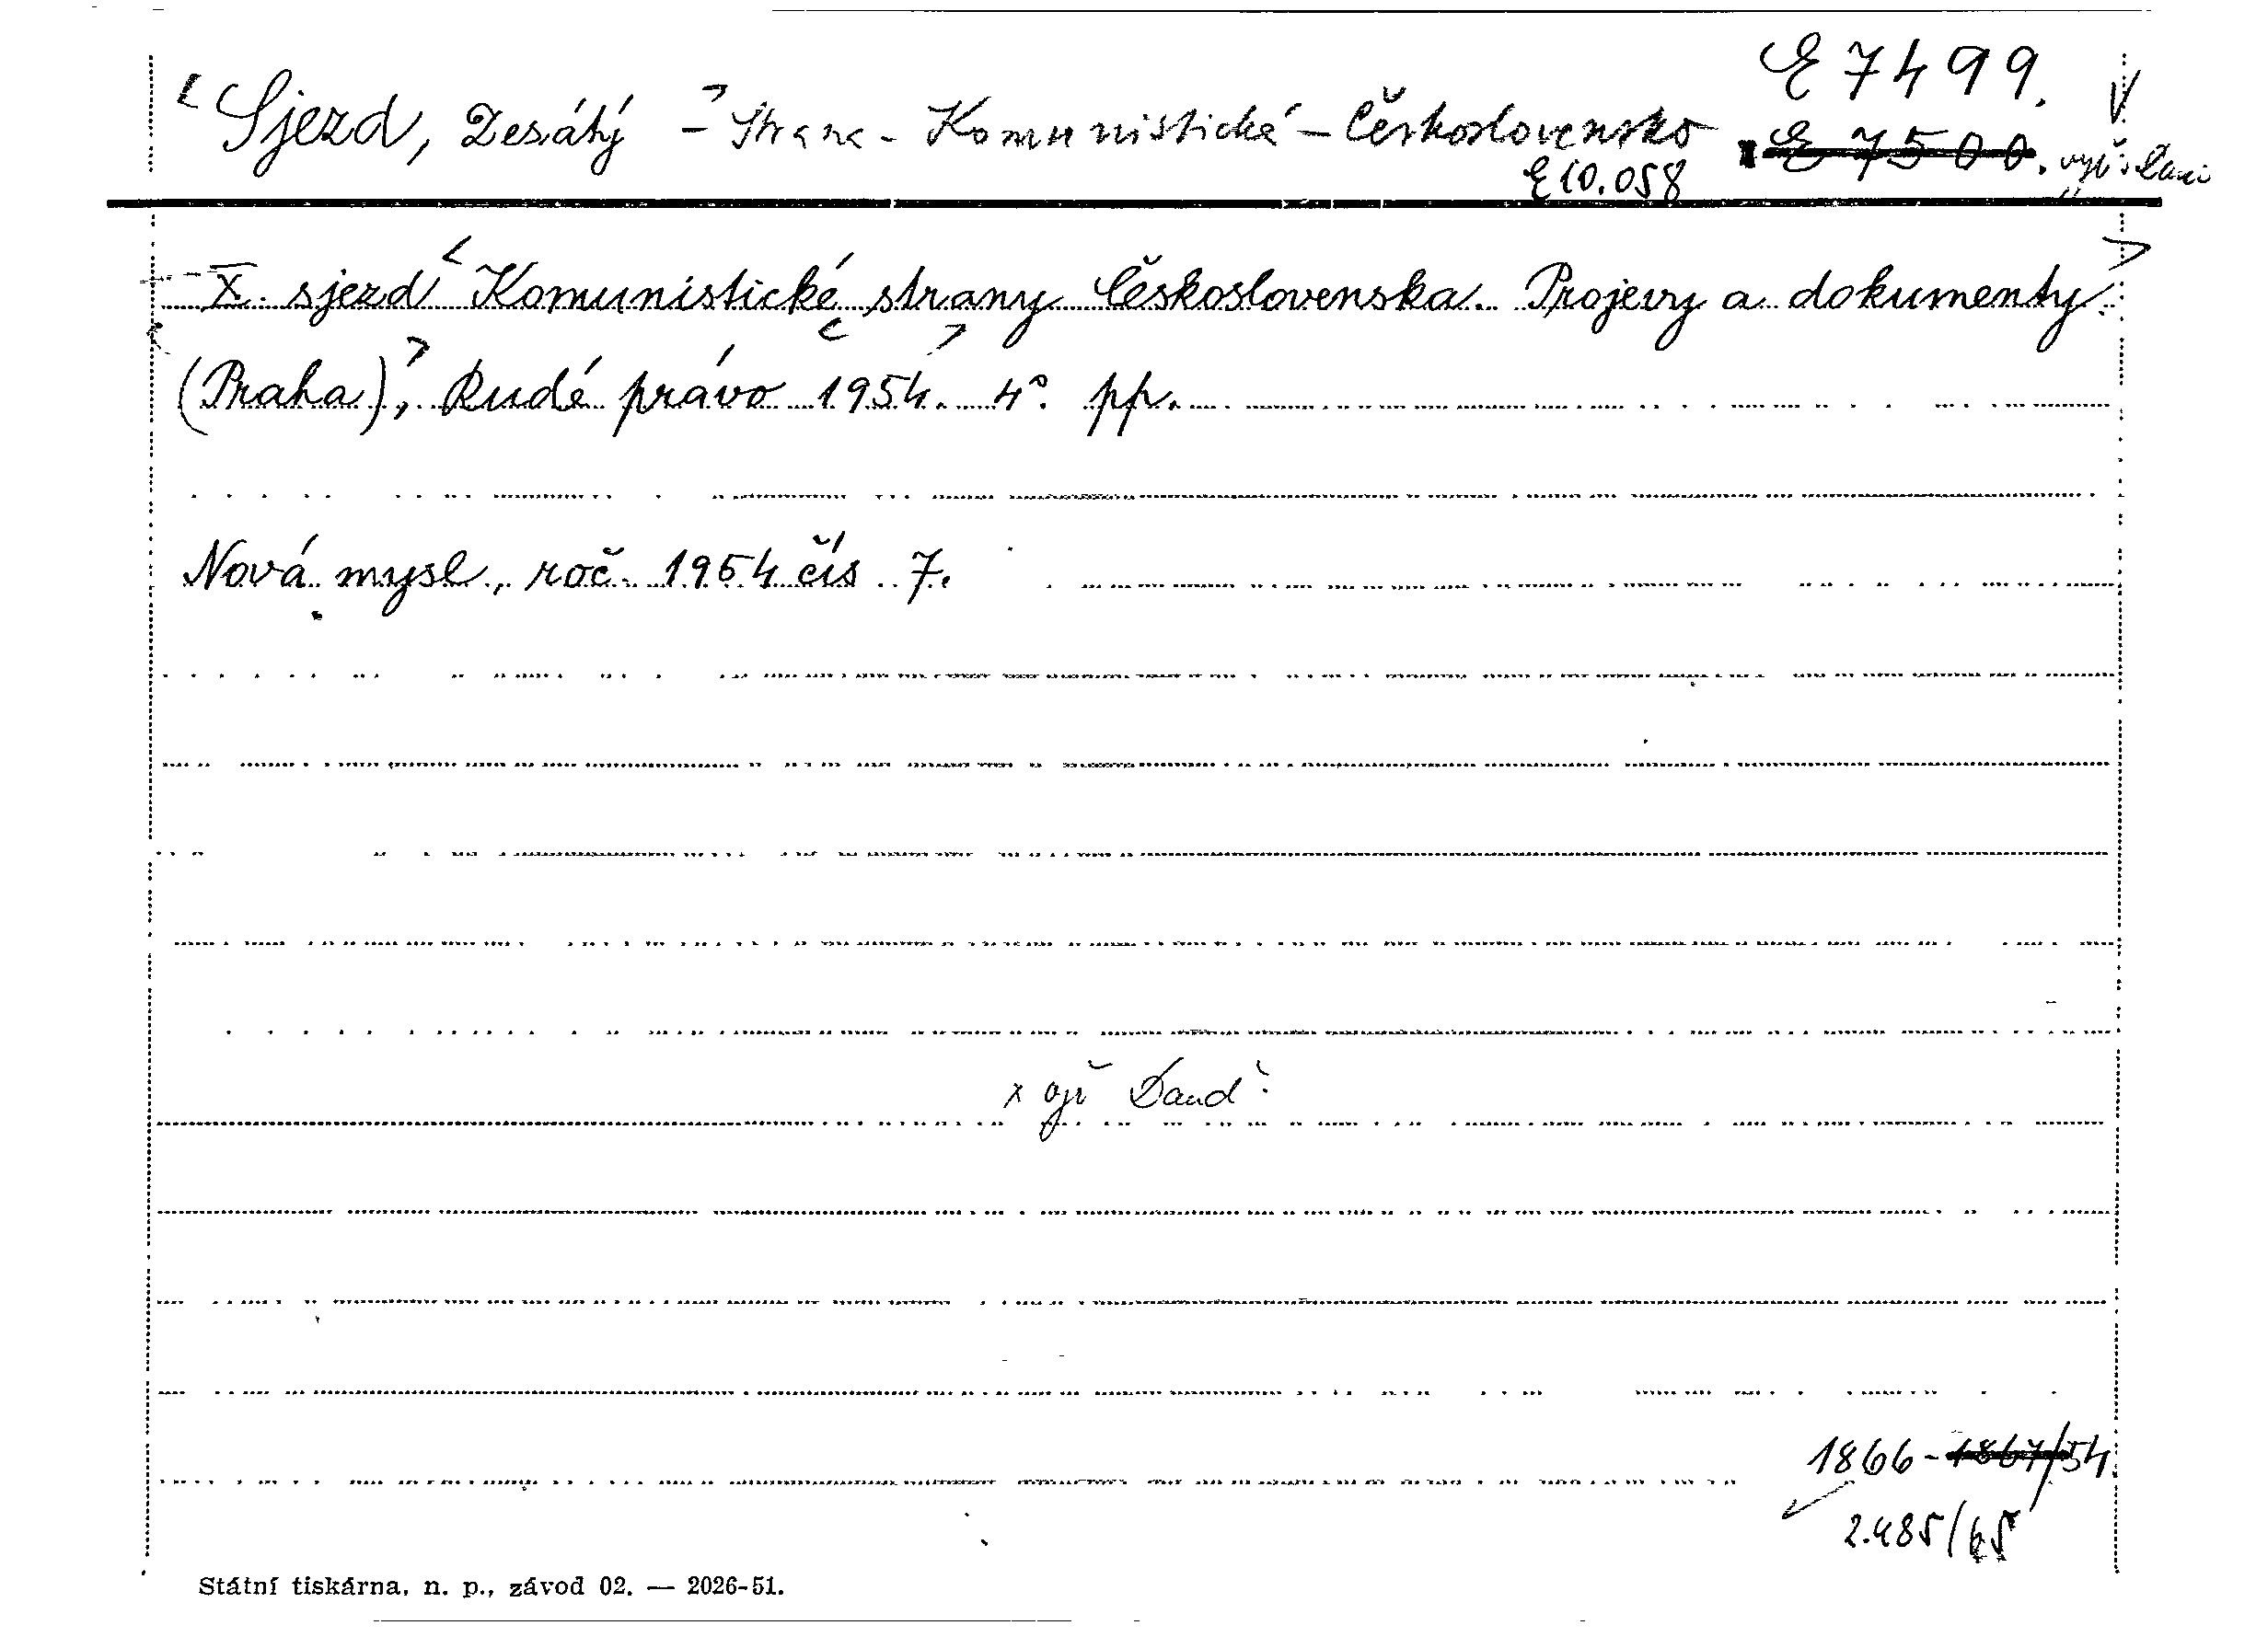 Sjezd, Desátý - Strana - Komunistická - Československo
E 7499.
E 7500.
E 10.058
X. sjezd Komunistické strany Československa. Projevy a dokumenty.
(Praha), Rudé právo 1954. 4°. pp.
Nová mysl, roč. 1954 čís 7.
1866-1867/54.
2.485/65
Státní tiskárna, n. p., závod 02. — 2026-51.